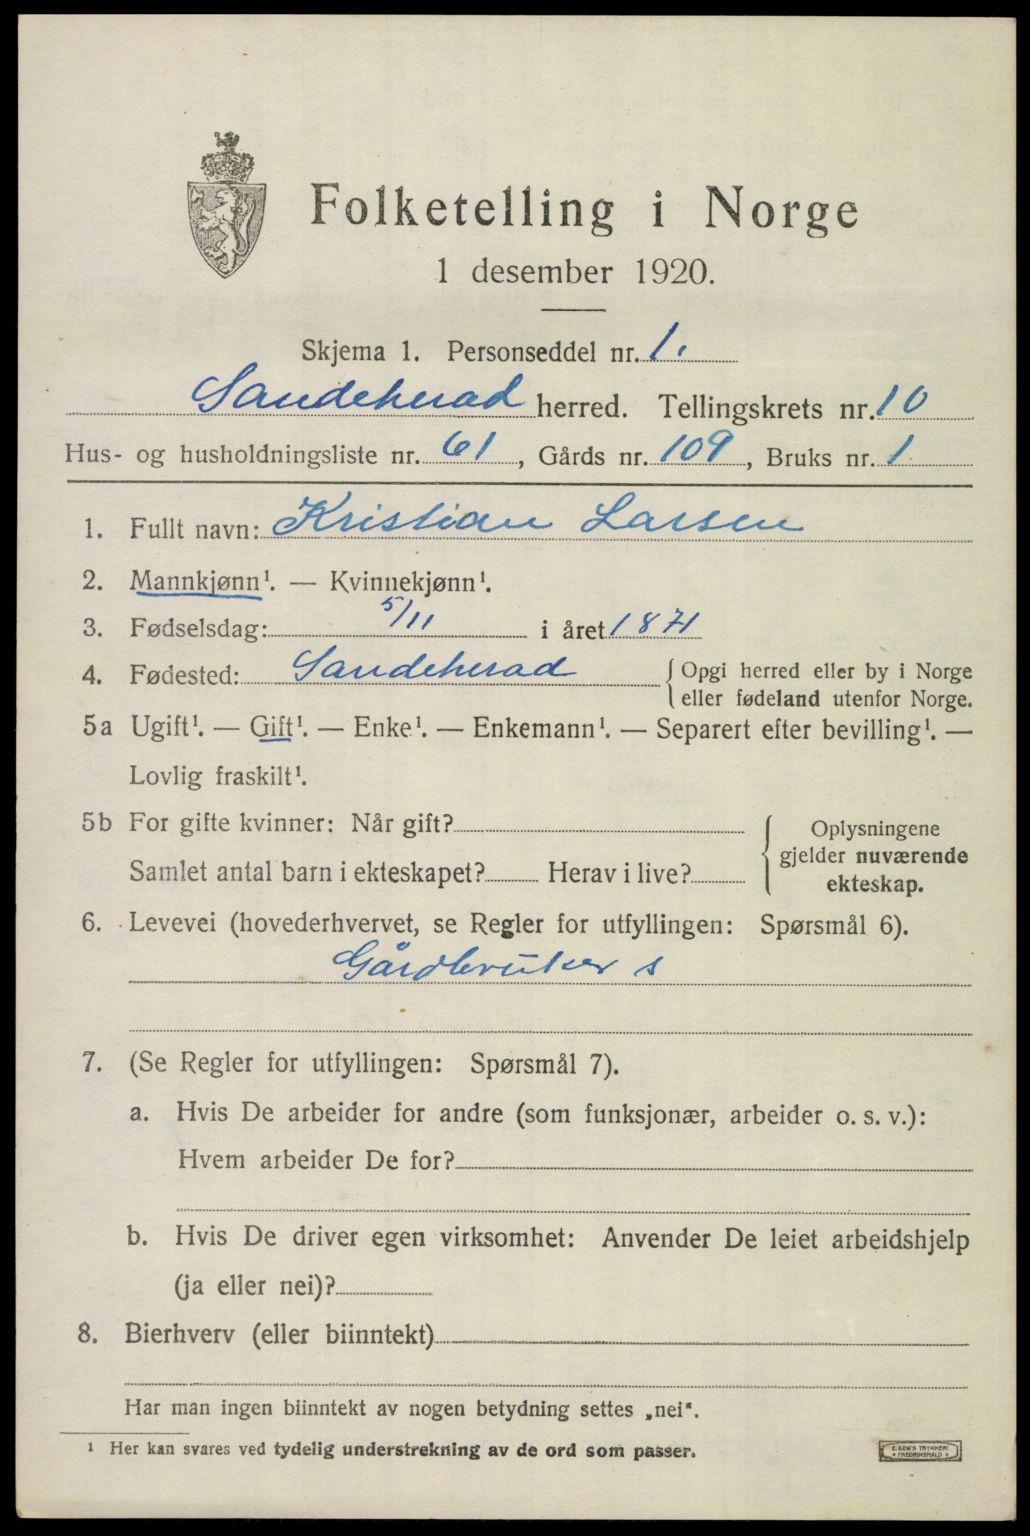 Folketelling i Norge
1 desember 1920.
Skjema 1. Personseddel nr. 1.
Sandeherad herred. Tellingskrets nr. 10
Hus- og husholdningsliste nr. 61, Gårds nr. 109, Bruks nr. 1
1. Fullt navn: Kristian Larsen
2. Mannkjønn¹. — Kvinnekjønn¹.
3. Fødselsdag: 5/11 i året 1871
4. Fødested: Sandeherad { Opgi herred eller by i Norge
eller fødeland utenfor Norge.
5a Ugift¹. — Gift¹. — Enke¹. — Enkemann¹. — Separert efter bevilling¹. —
Lovlig fraskilt¹.
5b For gifte kvinner: Når gift?
Samlet antal barn i ekteskapet? Herav i live?
Oplysningene
gjelder nuværende
ekteskap.
6. Levevei (hovederhvervet, se Regler for utfyllingen: Spørsmål 6).
Gårdbruker s
7. (Se Regler for utfyllingen: Spørsmål 7).
a. Hvis De arbeider for andre (som funksjonær, arbeider o. s. v.):
Hvem arbeider De for?
b. Hvis De driver egen virksomhet: Anvender De leiet arbeidshjelp
(ja eller nei)?
8. Bierhverv (eller biinntekt)
Har man ingen biinntekt av nogen betydning settes „nei“.
¹ Her kan svares ved tydelig understrekning av de ord som passer.
E. SEM'S TRYKKERI
• FREDRIKSHALD •